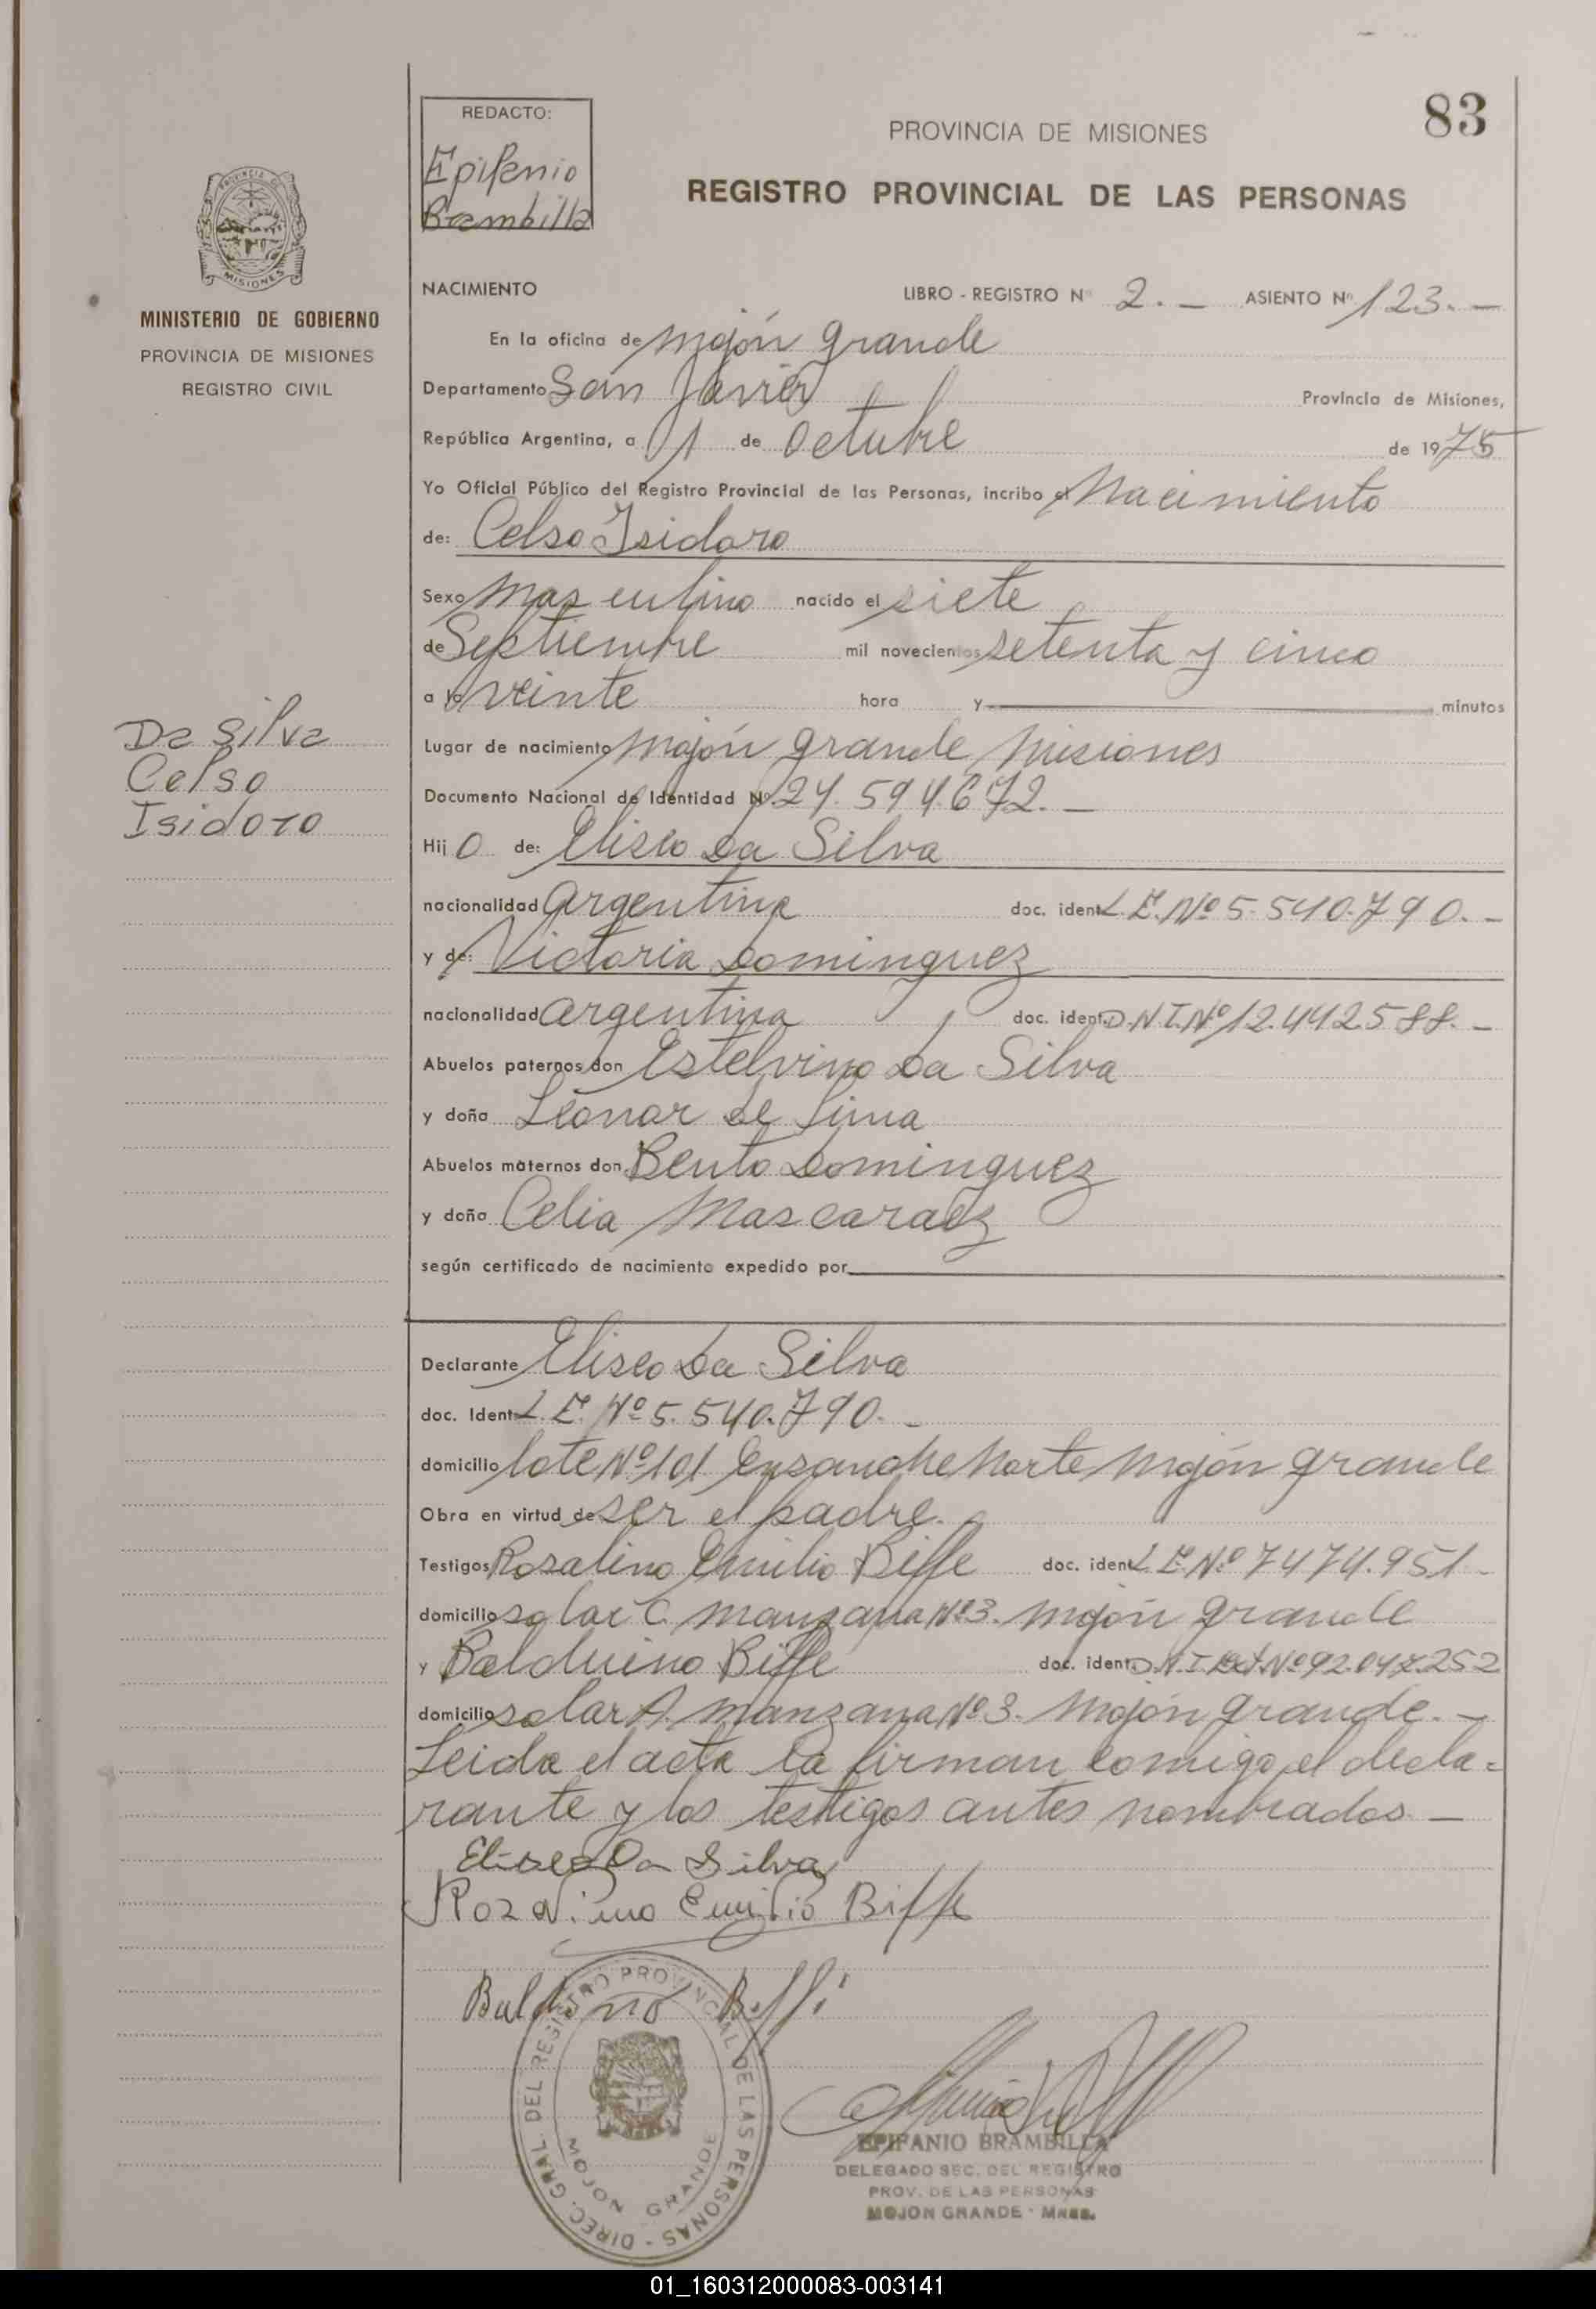 83
REDACTO:
Epifanio
Brambilla
PROVINCIA DE MISIONES
REGISTRO PROVINCIAL DE LAS PERSONAS
PROVINCIA DE
MISIONES
MINISTERIO DE GOBIERNO
PROVINCIA DE MISIONES
REGISTRO CIVIL
NACIMIENTO LIBRO - REGISTRO Nº 2. — ASIENTO Nº 123. —
En la oficina de Mojón grande
Departamento San Javier Provincia de Misiones,
República Argentina, a 01 de Octubre de 1975
Yo Oficial Público del Registro Provincial de las Personas, incribo el Nacimiento
de: Celso Isidoro
Sexo Masculino nacido el siete
de Septiembre mil novecientos setenta y cinco
a la veinte hora y minutos
Da Silva
Celso
Isidoro
Lugar de nacimiento Mojón grande Misiones
Documento Nacional de Identidad Nº 24.594.672. —
Hij o de: Eliseo Da Silva
nacionalidad argentina doc. ident. L.E. Nº 5.540.790. —
y de: Victoria Dominguez
nacionalidad argentina doc. ident. D.N.I. Nº 12.442.588. —
Abuelos paternos don Estelvino Da Silva
y doña Leonor de Lima
Abuelos maternos don Bento Dominguez
y doña Celia Mascaraez
según certificado de nacimiento expedido por
Declarante Eliseo Da Silva
doc. Ident. L.E. Nº 5.540.790. —
domicilio lote Nº 101 Ensanche Norte Mojón grande
Obra en virtud de ser el padre.
Testigos Rosalino Emilio Biffe doc. ident. L.E. Nº 7474.951 -
domicilio solar C manzana Nº 3. Mojón grande
y Balduino Biffe doc. ident. D.N.I. Ext. Nº 92.047.252
domicilio solar A. manzana Nº 3. Mojón grande. —
Leida el acta la firman comigo el decla=
rante y los testigos antes nombrados —
Eliseo Da Silva
Rozalino Emilio Biffe
Balduino Biffi
DIREC. GRAL. DEL REGISTRO PROVINCIAL DE LAS PERSONAS -
MOJON GRANDE
EPIFANIO BRAMBILLA
DELEGADO SEC. DEL REGISTRO
PROV. DE LAS PERSONAS
MOJON GRANDE - Mnes.
01_160312000083-003141